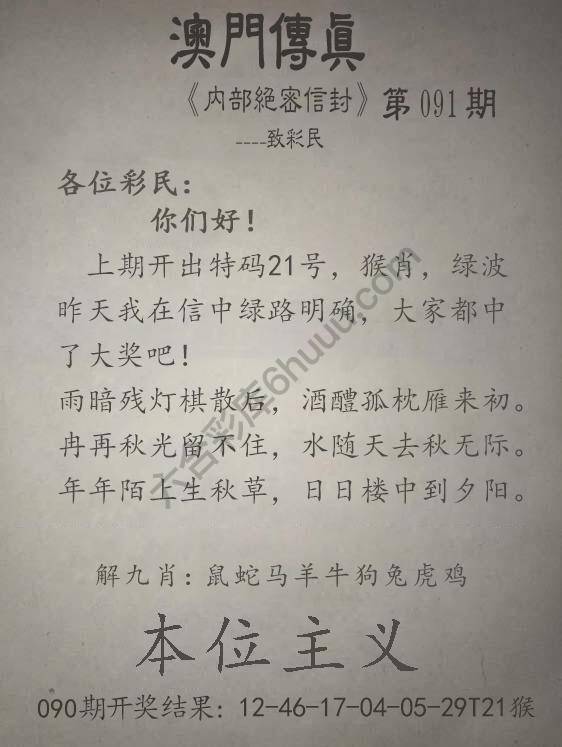 澳門傳真
《内部絕密信封》第091期
----致彩民
各位彩民：
你们好！
上期开出特码21号，猴肖，绿波
昨天我在信中绿路明确，大家都中
了大奖吧！
雨暗残灯棋散后，酒醴孤枕雁来初。
冉再秋光留不住，水随天去秋无际。
年年陌上生秋草，日日楼中到夕阳。
解九肖：鼠蛇马羊牛狗兔虎鸡
本位主义
090期开奖结果：12-46-17-04-05-29T21猴
六合彩库6huuu.com